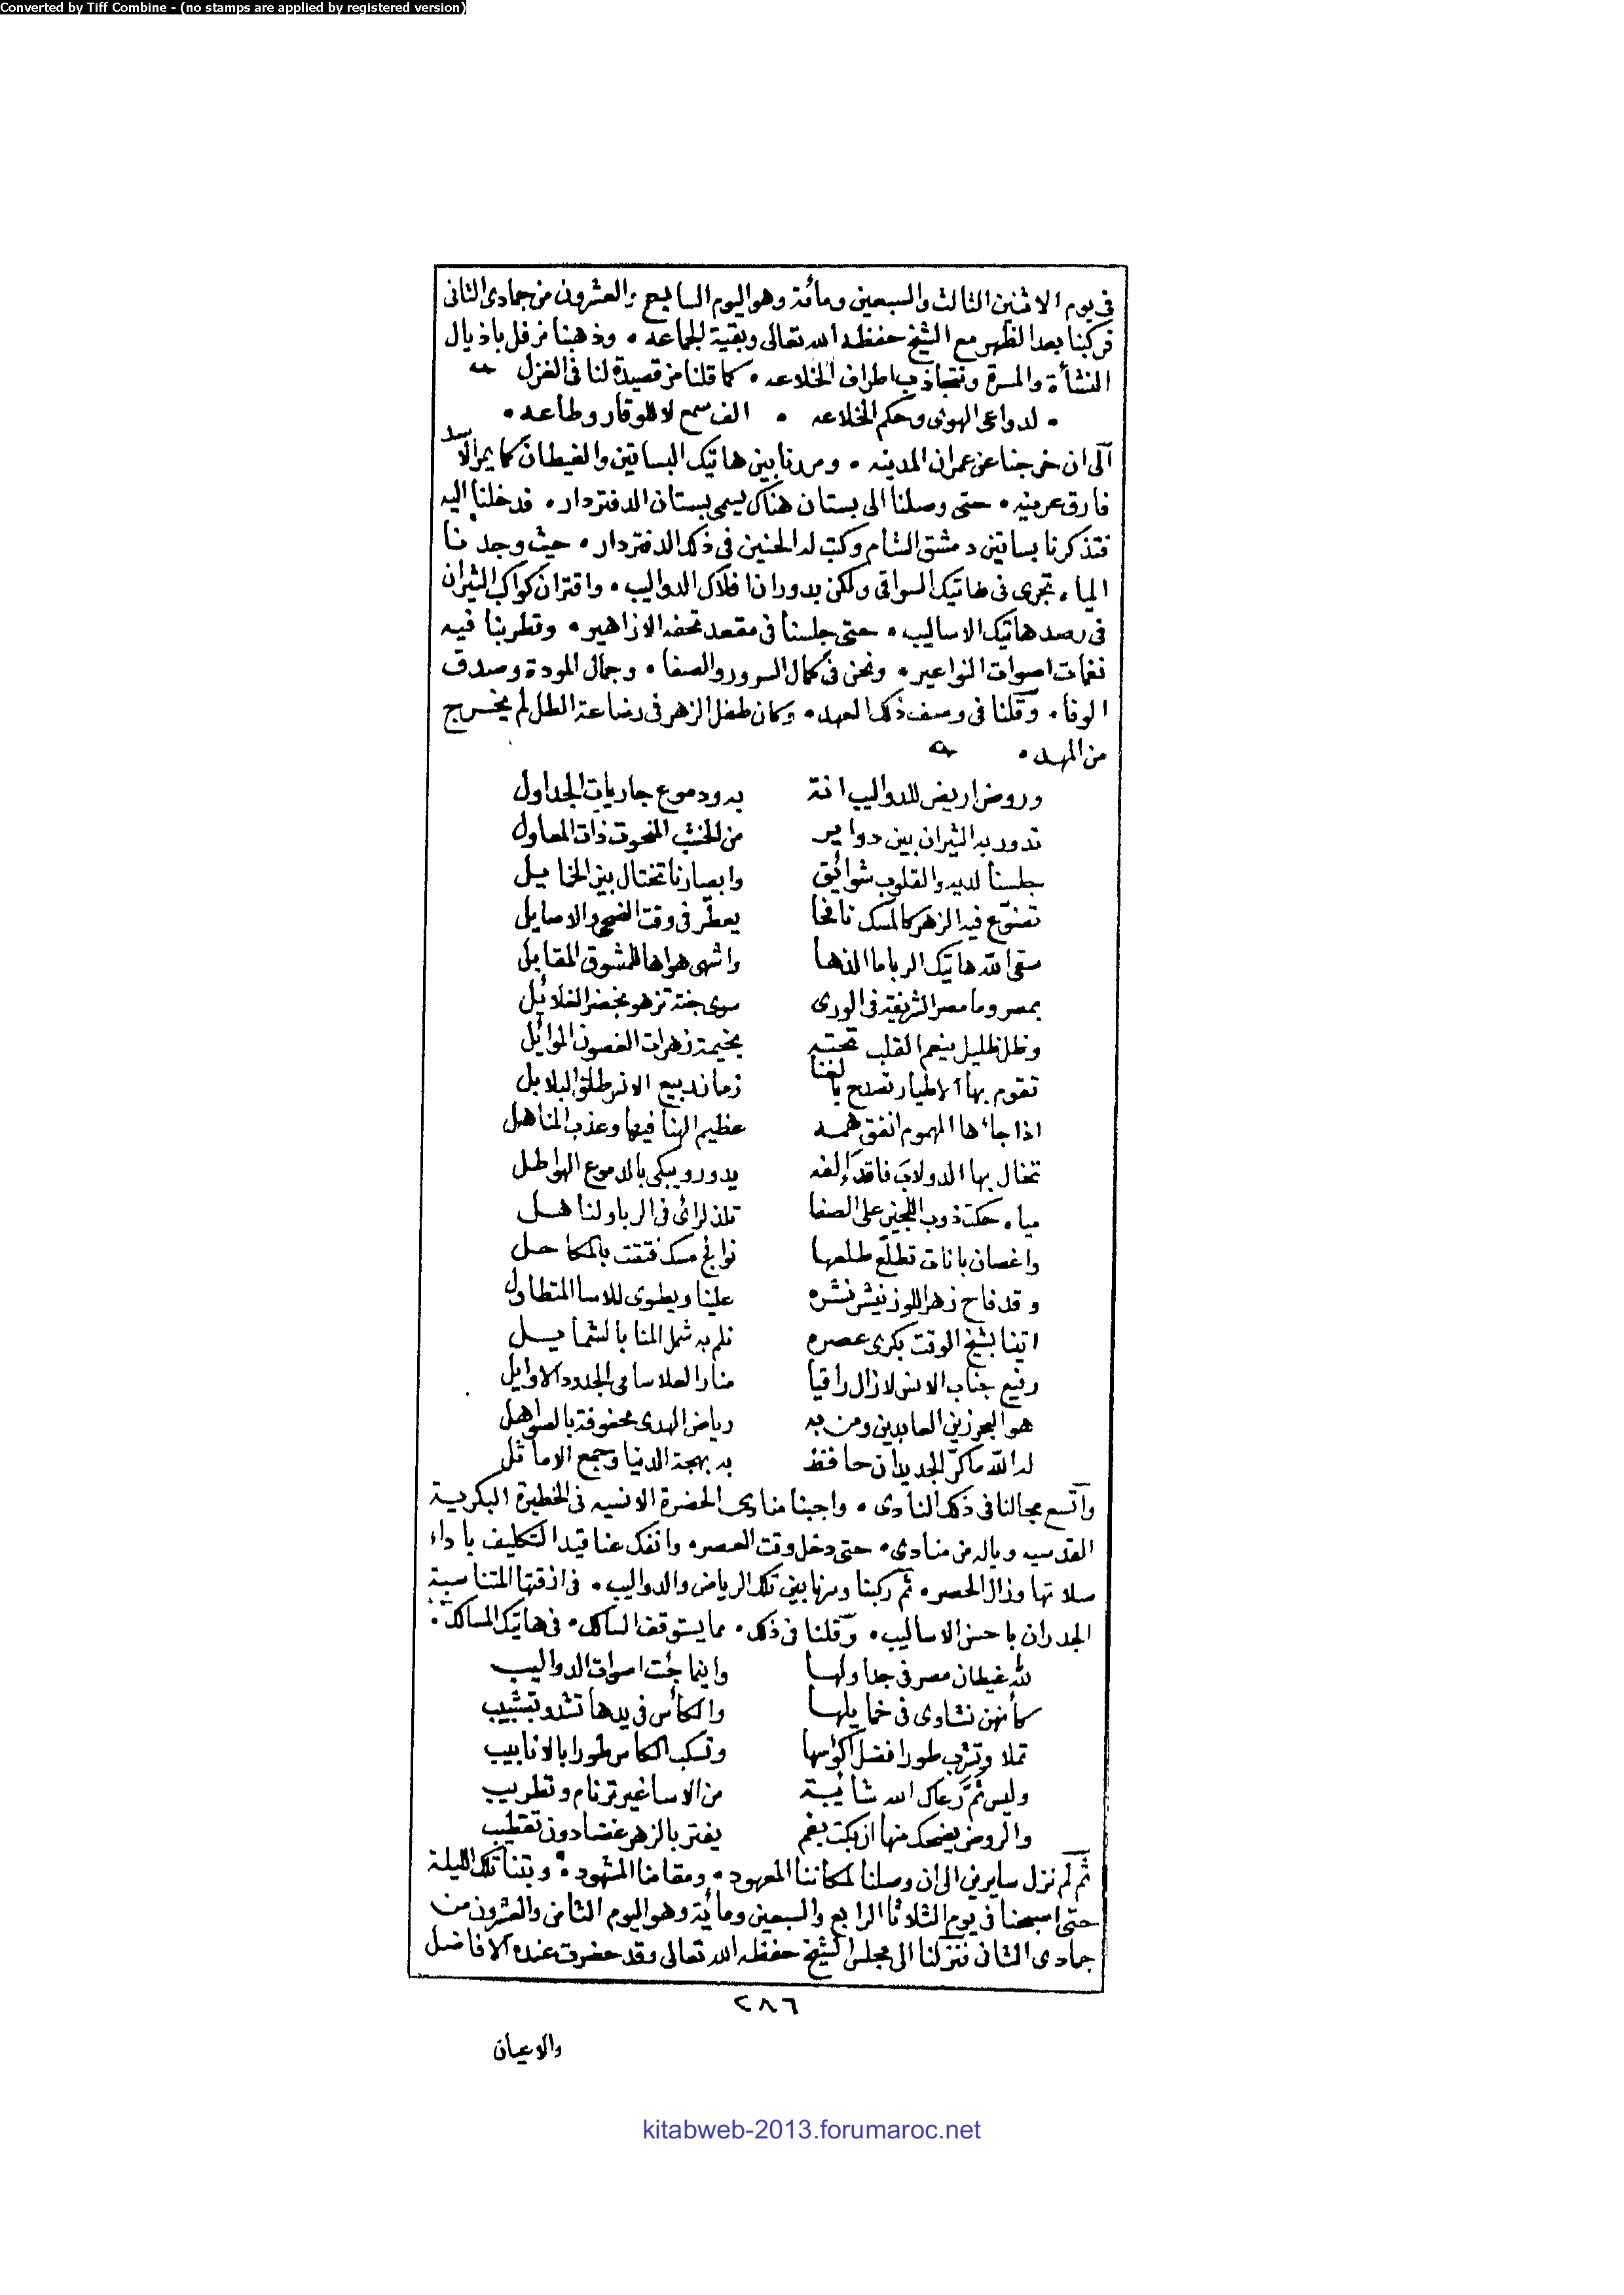 Converted by Tiff Combine - (no stamps are applied by registered version)
في يوم الاثنين الثالث والسبعين ومأئة وهو اليوم السابع والعشرون من جمادى الثانى
فركبنا بعد الظهر مع الشيخ حفظه الله تعالى وبقية الجماعه • وذهبنا نرفل باذيال
النشأة والمسرة ونتجاذب اطراف الخلاعه • كما قلنا من قصيدة لنا فى الغزل
• لدواعى الهوى وحكم الخلاعه • الف سمع لا للوقار وطاعه •
الى ان خرجنا عن عمران المدينه • ومررنا بين هاتيك البساتين والغيطان كما يمر الاسد
فارق عرينه • حتى وصلنا الى بستان هناك يسمى بستان الدفتردار • فدخلنا اليه
فتذكرنا بساتين دمشق الشام وكتب له الحنين فى ذلك الدفتردار • حيث وجدنا
المياه تجرى فى هاتيك السواقى ولكن بدوران افلاك الدواليب • واقتران كواكب الثيران
فى رصد هاتيك الاساليب • حتى جلسنا فى مقعد تحفه الازاهير • وتطربنا فيه
نغمات اصوات النواعير • ونحن فى كمال السرور والصفا • وجمال المودة وصدق
الوفا • وقلنا فى وصف ذلك العهد • وكان طفل الزهر فى رضاعة الطل لم يخرج
من المهد •
وروض اريض للدواليب انة به ودموع جاريات الجداول
تدور به الثيران بين دواير من الخشب المنحوت ذات المعاول
جلسنا لديه والقلوب شوائق وابصارنا تختال بين الخمايل
تضوّع فيه الزهر كالمسك نافحا يعطّر فى وقت الضحى والاصايل
سقى الله هاتيك الربا ما الذها واشهى هواها للمشوق المقابل
بمصر وما مصر الشريفة فى الورى سوى جنة تزهو بخضر الغلائل
وظل ظليل ينعم القلب تحته بخيمة زهرات الغصون الموائل
تقوم بها الاطيار تصدح بالغنا زمان ربيع الانس طلق البلابل
اذا جاءها المهموم انفق همه عظيم الهنا فيها وعذب المناهل
تخال بها الدولاب فاقد إلفه يدور ويبكى بالدموع الهواطل
مياه حكت ذوب اللجين على الصفا تلذ لرائى فى الربا ولناهل
واغصان بانات تطلّع طلعها نوافج مسك فتقت بالمكاحل
وقد فاح زهر اللوز ينشر نشره علينا ويطوى للاسا المتطاول
اتينا بشيخ الوقت بكرى عصره نلم به شمل المنا بالشمايل
رفيع جناب الانس لا زال راقيا منار العلا سامى الجدود الاوايل
هو البحر زين العابدين ومن به رياض الهدى محفوفة بالصواهل
له الله ما كرّ الجديدان حافظ به بهجة الدنيا وجمع الاماثل
واتسع مجالنا فى ذلك النادى • واجبنا منادى الحضرة الانسيه فى الخطيرة البكرية
القدسيه وياله من منادى • حتى دخل وقت العصر • وانفك عنا قيد التكليف باداء
صلاتها وزال الحصر • ثم ركبنا وسرنا بين تلك الرياض والدواليب • فى ازقتها المتناسبة
الجدران باحسن الاساليب • وقلنا فى ذلك • مما يستوقف السالك • فى هاتيك المسالك •
لله غيطان مصر فى جداولها واينما جئت اصوات الدواليب
كأنهن نشاوى فى خمايلها والكأس فى يدها تشدو بتشبيب
تملا وتشرب طورا فضل اكؤسها وتسكب الكاس طورا بالانابيب
وليس ثَمَّ رعاك الله شائبة من الاسا غير ترنام وتطريب
والروض يضحك منها ان بكت بغم يفتر بالزهر غضا دون تقطيب
ثم لم نزل سايرين الى ان وصلنا لمكاننا المعهود • ومقامنا المشهود • وبتنا تلك الليلة
حتى اصبحنا فى يوم الثلاثا الرابع والسبعين ومأية وهو اليوم الثامن والعشرون من
جمادى الثانى فنزلنا الى مجلس الشيخ حفظه الله تعالى وقد حضرت عنده الافاضل
٢٨٦
والاعيان
kitabweb-2013.forumaroc.net